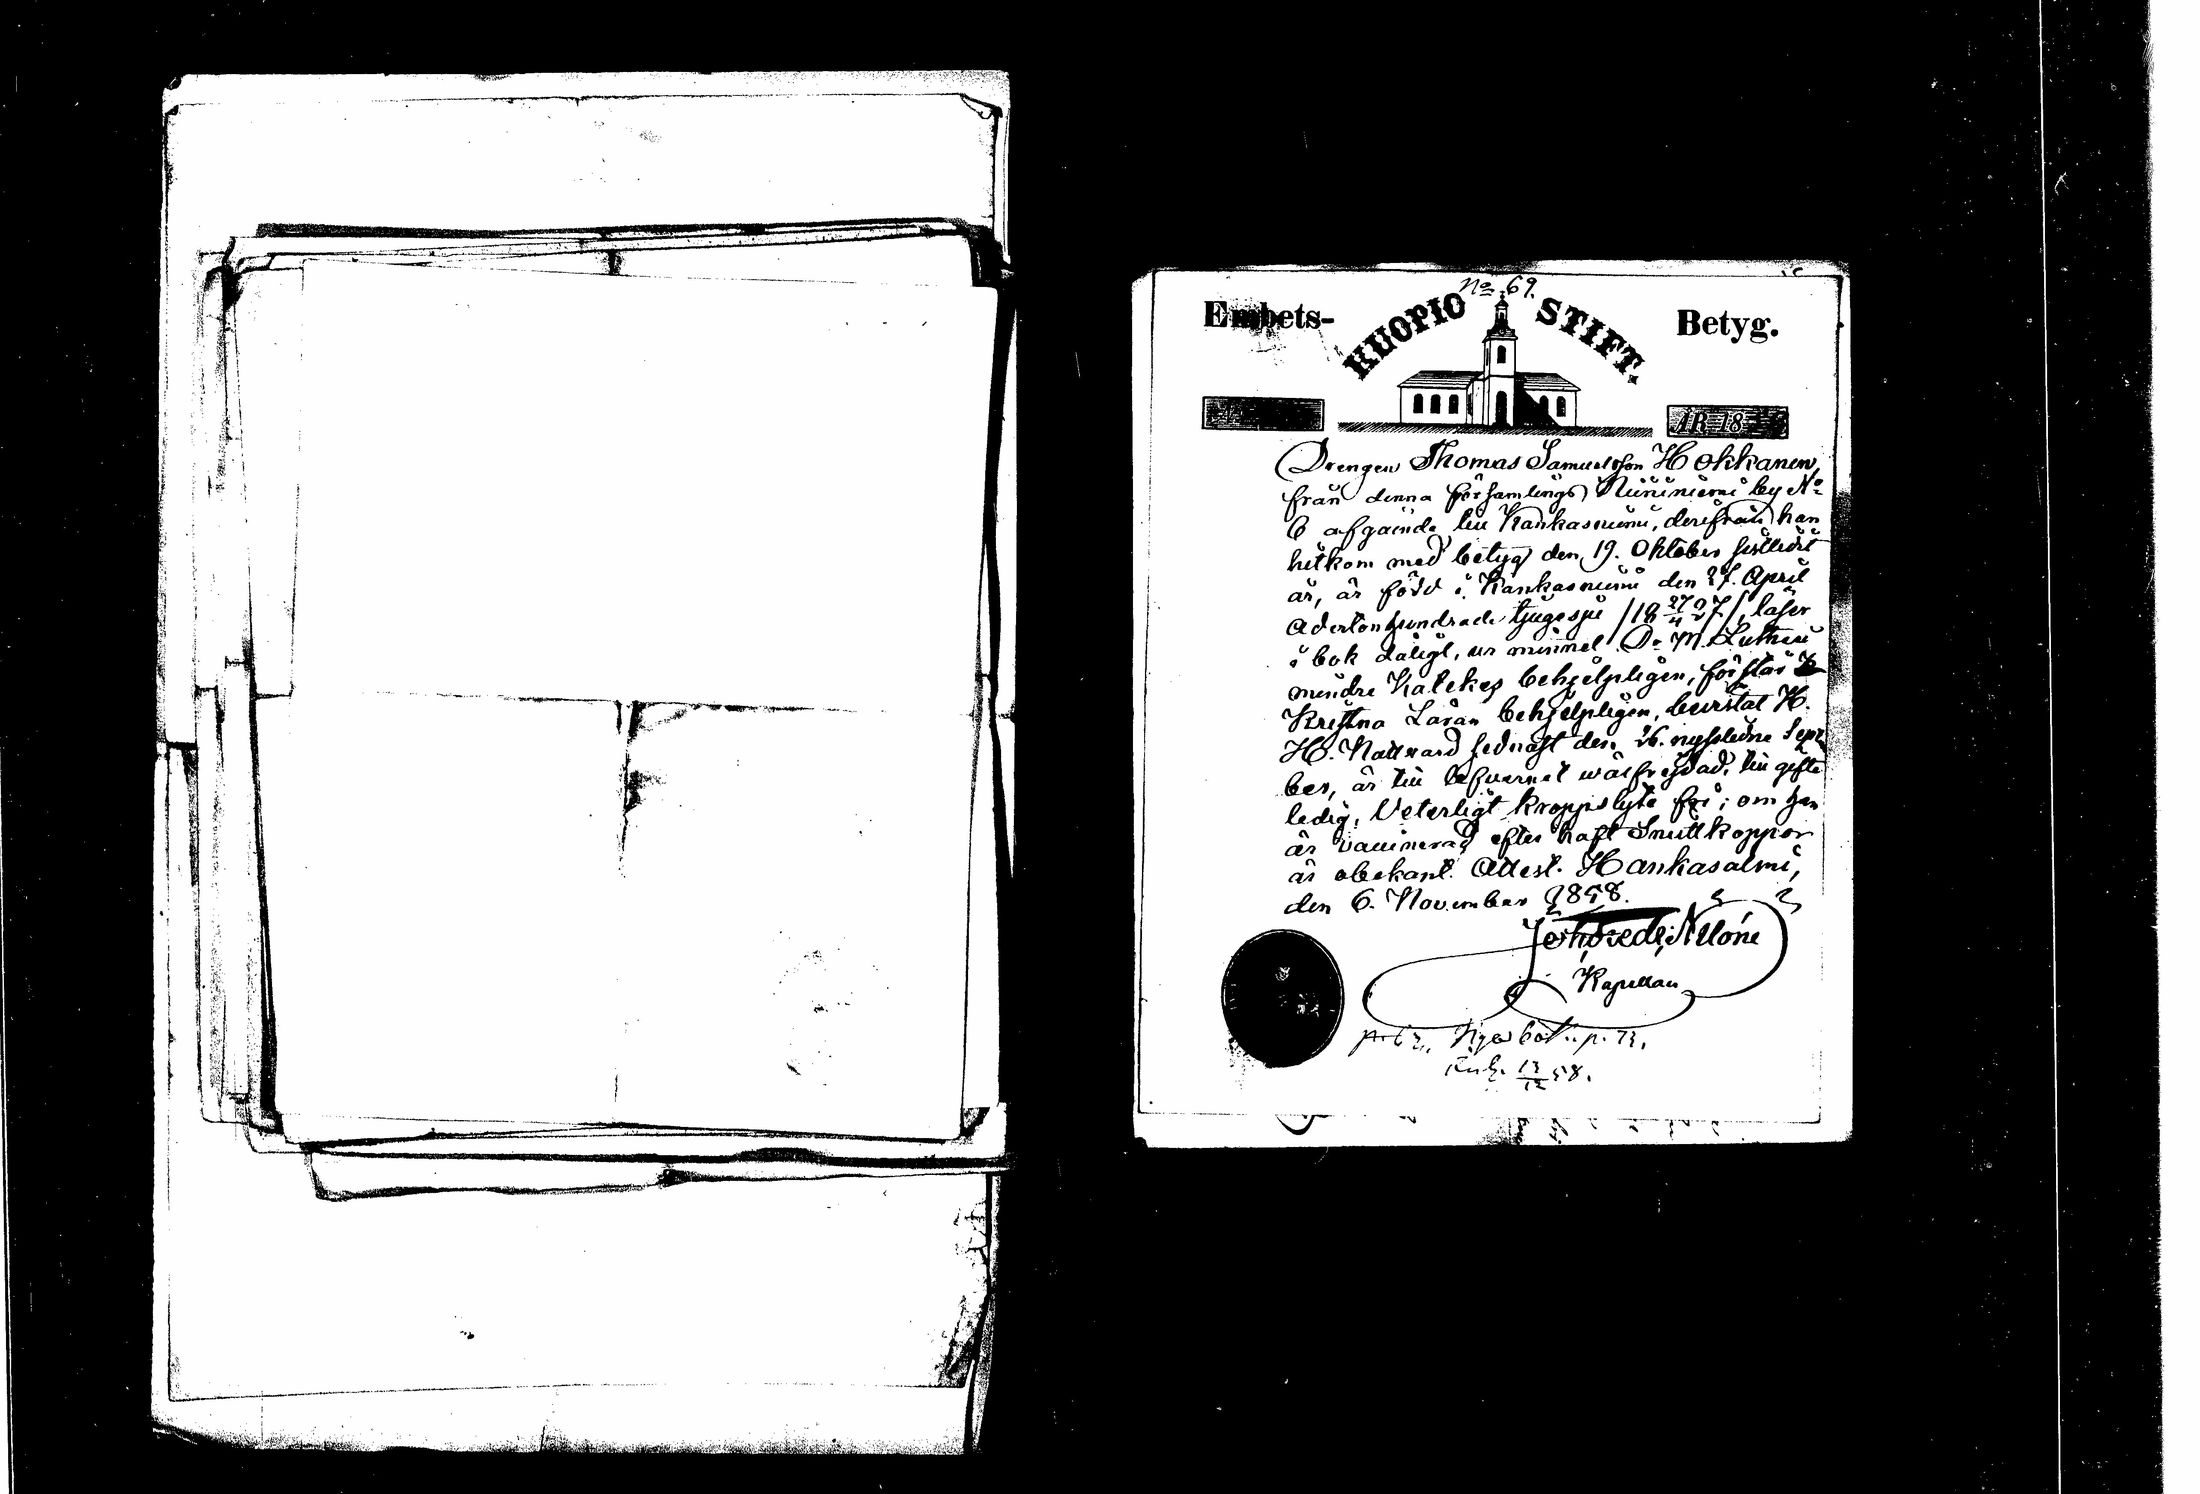 No 69.
Embets-
KUOPIO STIFT.
Betyg.
ÅR 18
Drengen Thomas Samuelsson Hokkanen,
från denna församlings Niininiemi by No
6 afgående till Kankasniemi, derifrån han
hitkom med betyg den 19. Oktober sistledit
år, är född i Kankasniemi den 27. April
Adertonhundrade tjugesju /18 27/4 27/, läser
i bok dåligt, ur minnet D. M. Lutheri
mindre Katekes behjelpligen, förstår
Kristna Läran behjelpligen, bevistat H.
H. Nattvard sednast den 26. nystledne Sept
ber, är till lefvernet wälfrejdad, till gifte
ledig, Veterligt kroppslyte fri; om han
är vaccinerad eller haft Smittkoppor
är obekant. Attest. Hankasalmi,
den 6. November 1858.
Kapellan
p. 63, Nya bok. p. 73.
13/12 58.